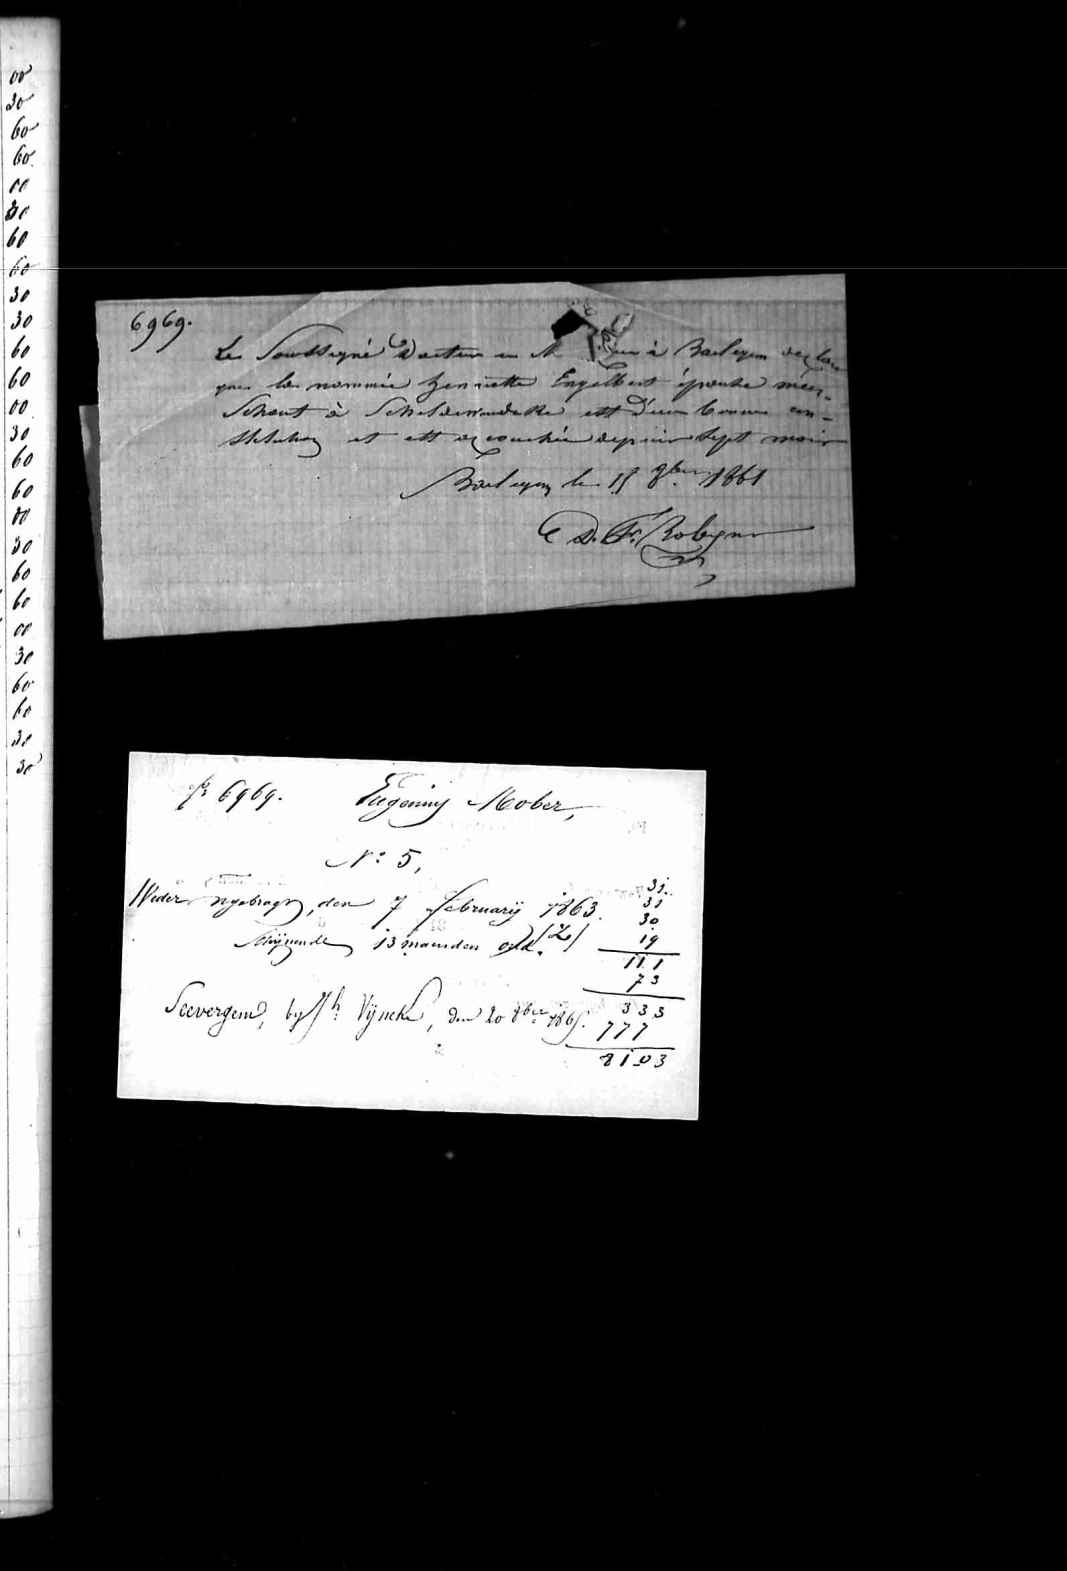 00
30
60
60
00
30
60
60
30
30
60
60
00
30
60
60
00
30
60
60
00
30
60
60
30
30
6969.
Le Soussigné Docteur en à Baelegem declare
que la nommée Henriette Engelbert épouse meer-
Schaut à Scheldewindeke est d'une bonne con-
stitution et est accouchée depuis sept mois
Baelegem le 15 9bre 1861
D. F.
6969.
Eugenius Mober,
N° 5,
Weder den 7 february 1863.
Schijnende 13 maenden oud
Seevergem, by Jh Vijncke, den 20 8bre
31
31
30
19
111
73
333
777
8103